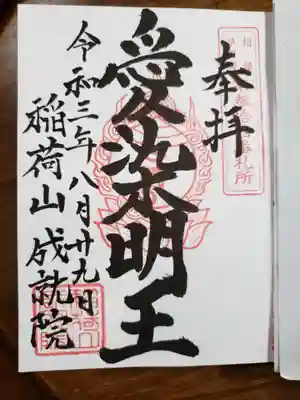 奉拝
愛染明王
令和三年八月廿九日
稲荷山成就院